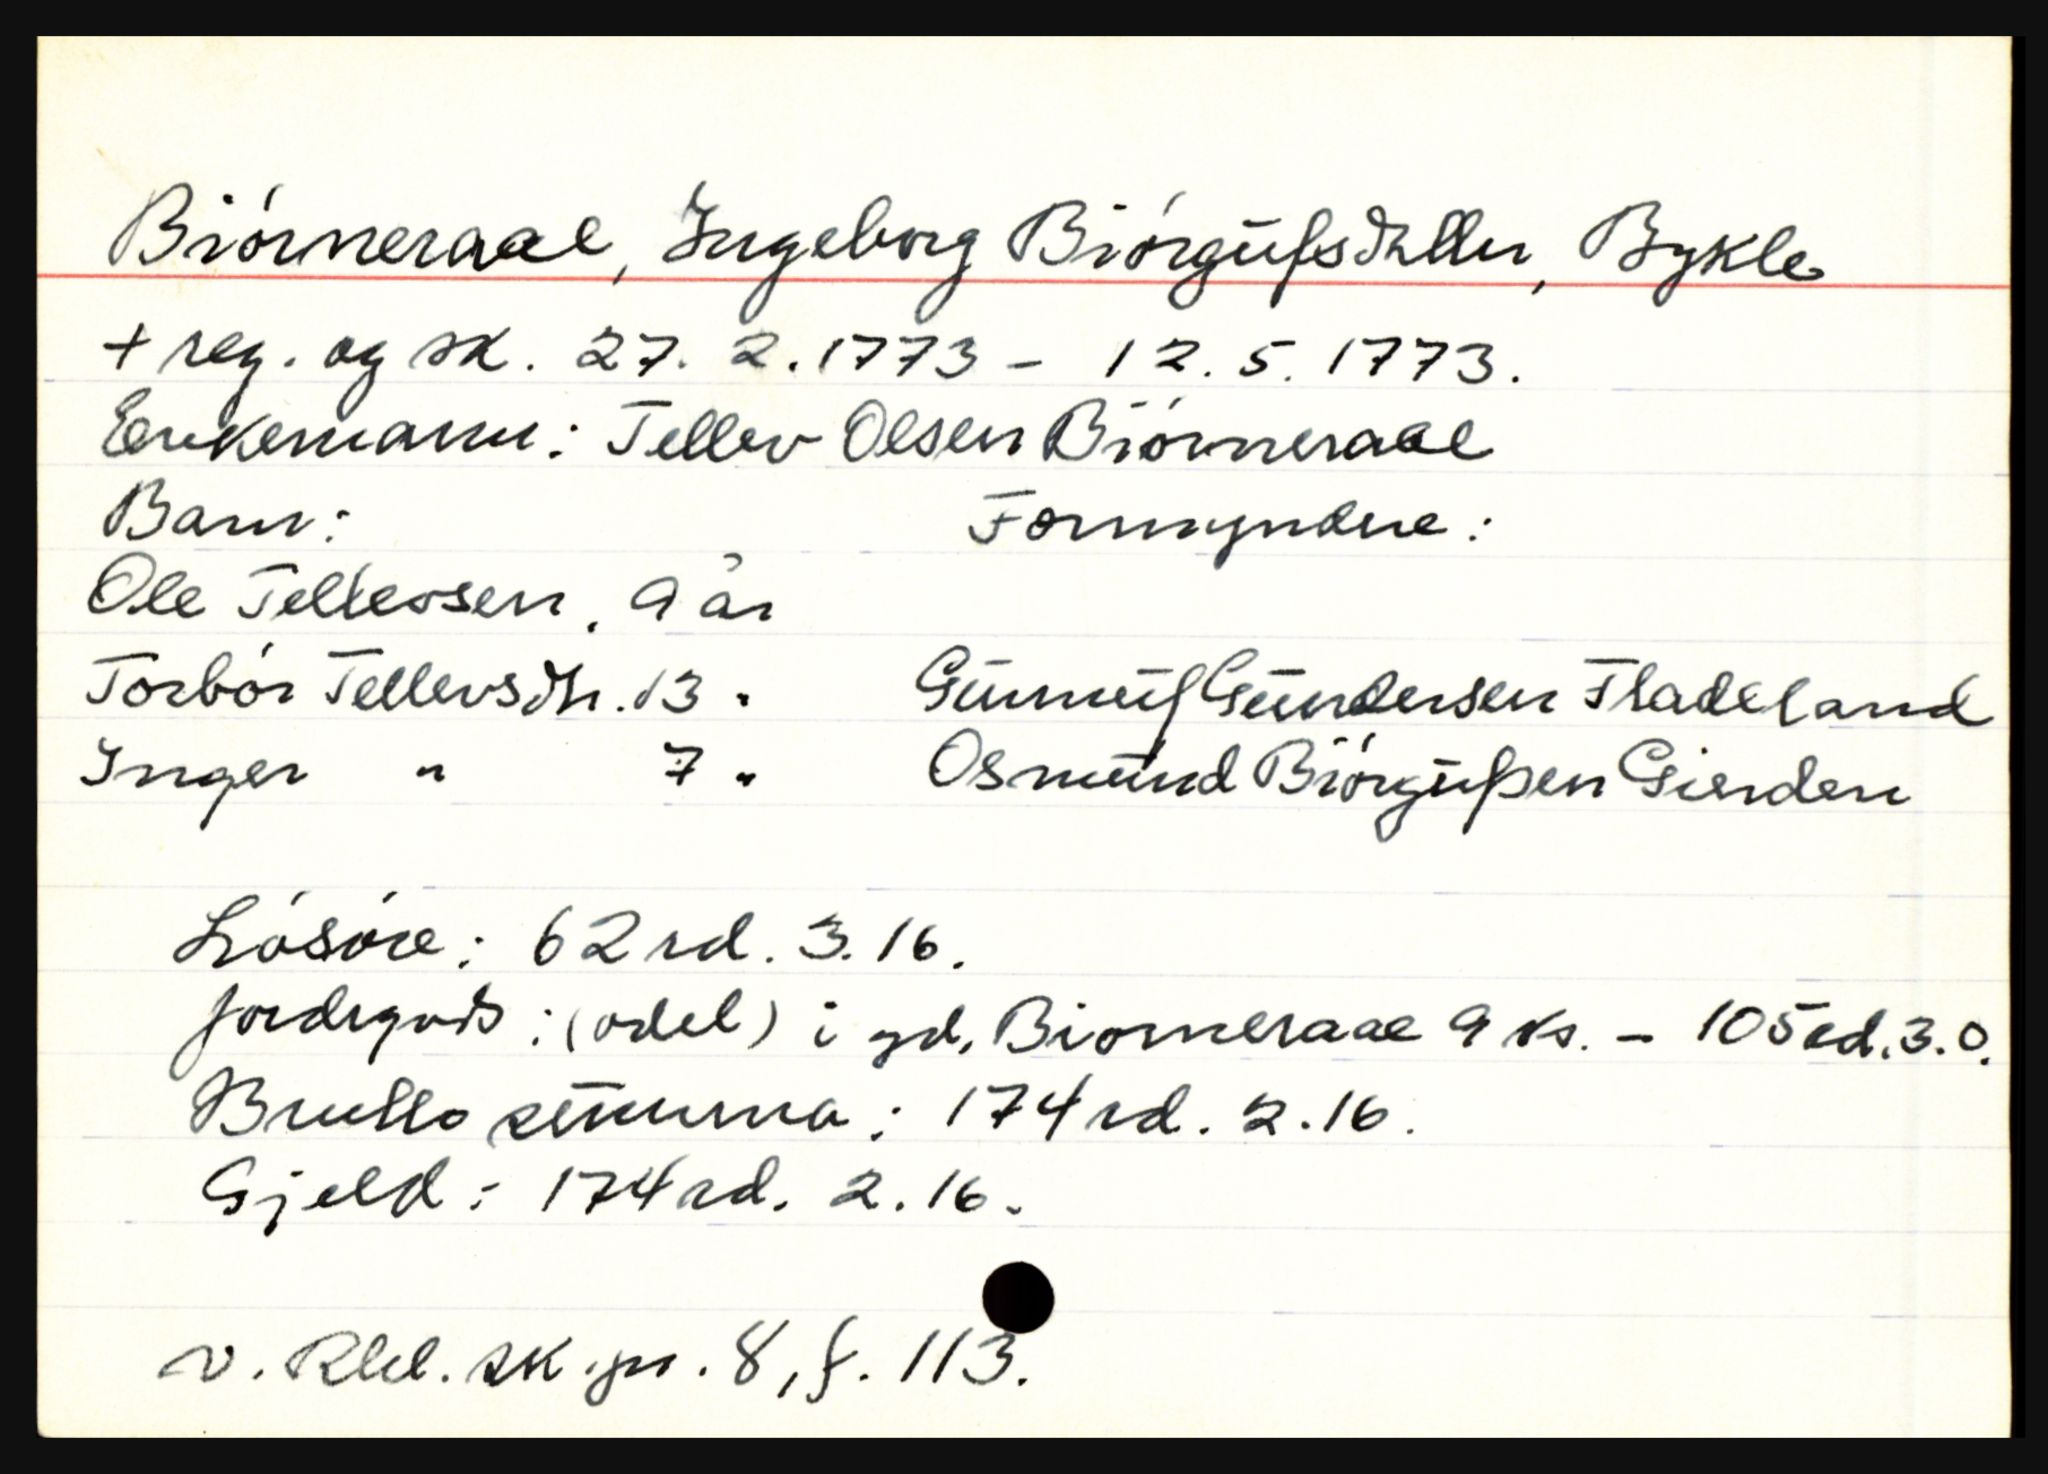 Biórneraae, Ingeborg Biórgufsdatter, Bykle
+ reg. og sk. 27. 2. 1773 - 12. 5. 1773.
Enkemann: Tellev Olsen Biórneraae
Barn: Formyndere:
Ole Tellevsen, 9 år
Torbór Tellevsdtr. 13 " Gunnuf Gundersen Fladeland
Inger " 7 " Osmund Biórgufsen Gierden
Lósóre: 62 rd. 3. 16.
Jordegods: (odel) i gd. Biorneraae 9 ks. - 105 rd. 3. 0.
Brutto summa: 174 rd. 2. 16.
Gjeld: 174 rd. 2. 16.
v. Rbd. sk. pr. 8, f. 113.